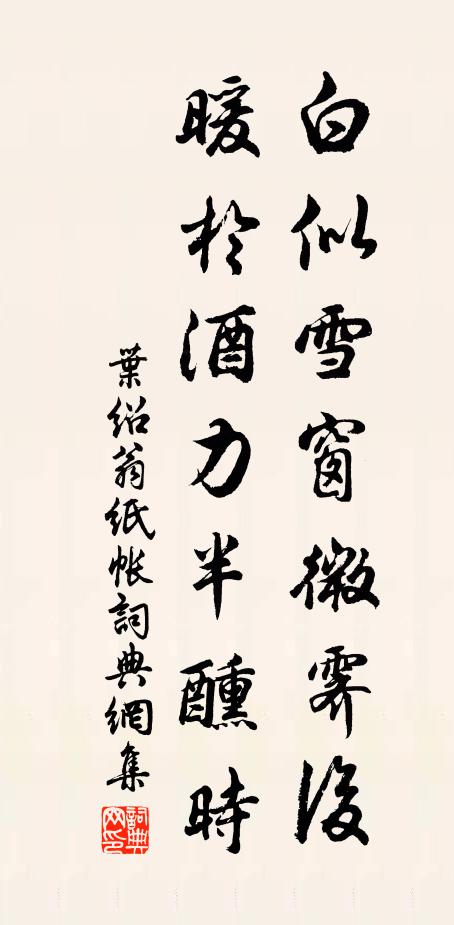 白似雪窗微霽後
暖於酒力半醺時
葉紹翁紙帳詞典網集
詞典網印